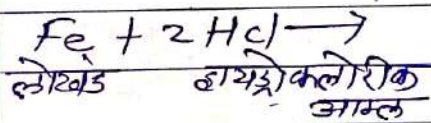 Fe + 2HCl ⟶
लोखंड हायड्रोक्लोरीक
आम्ल